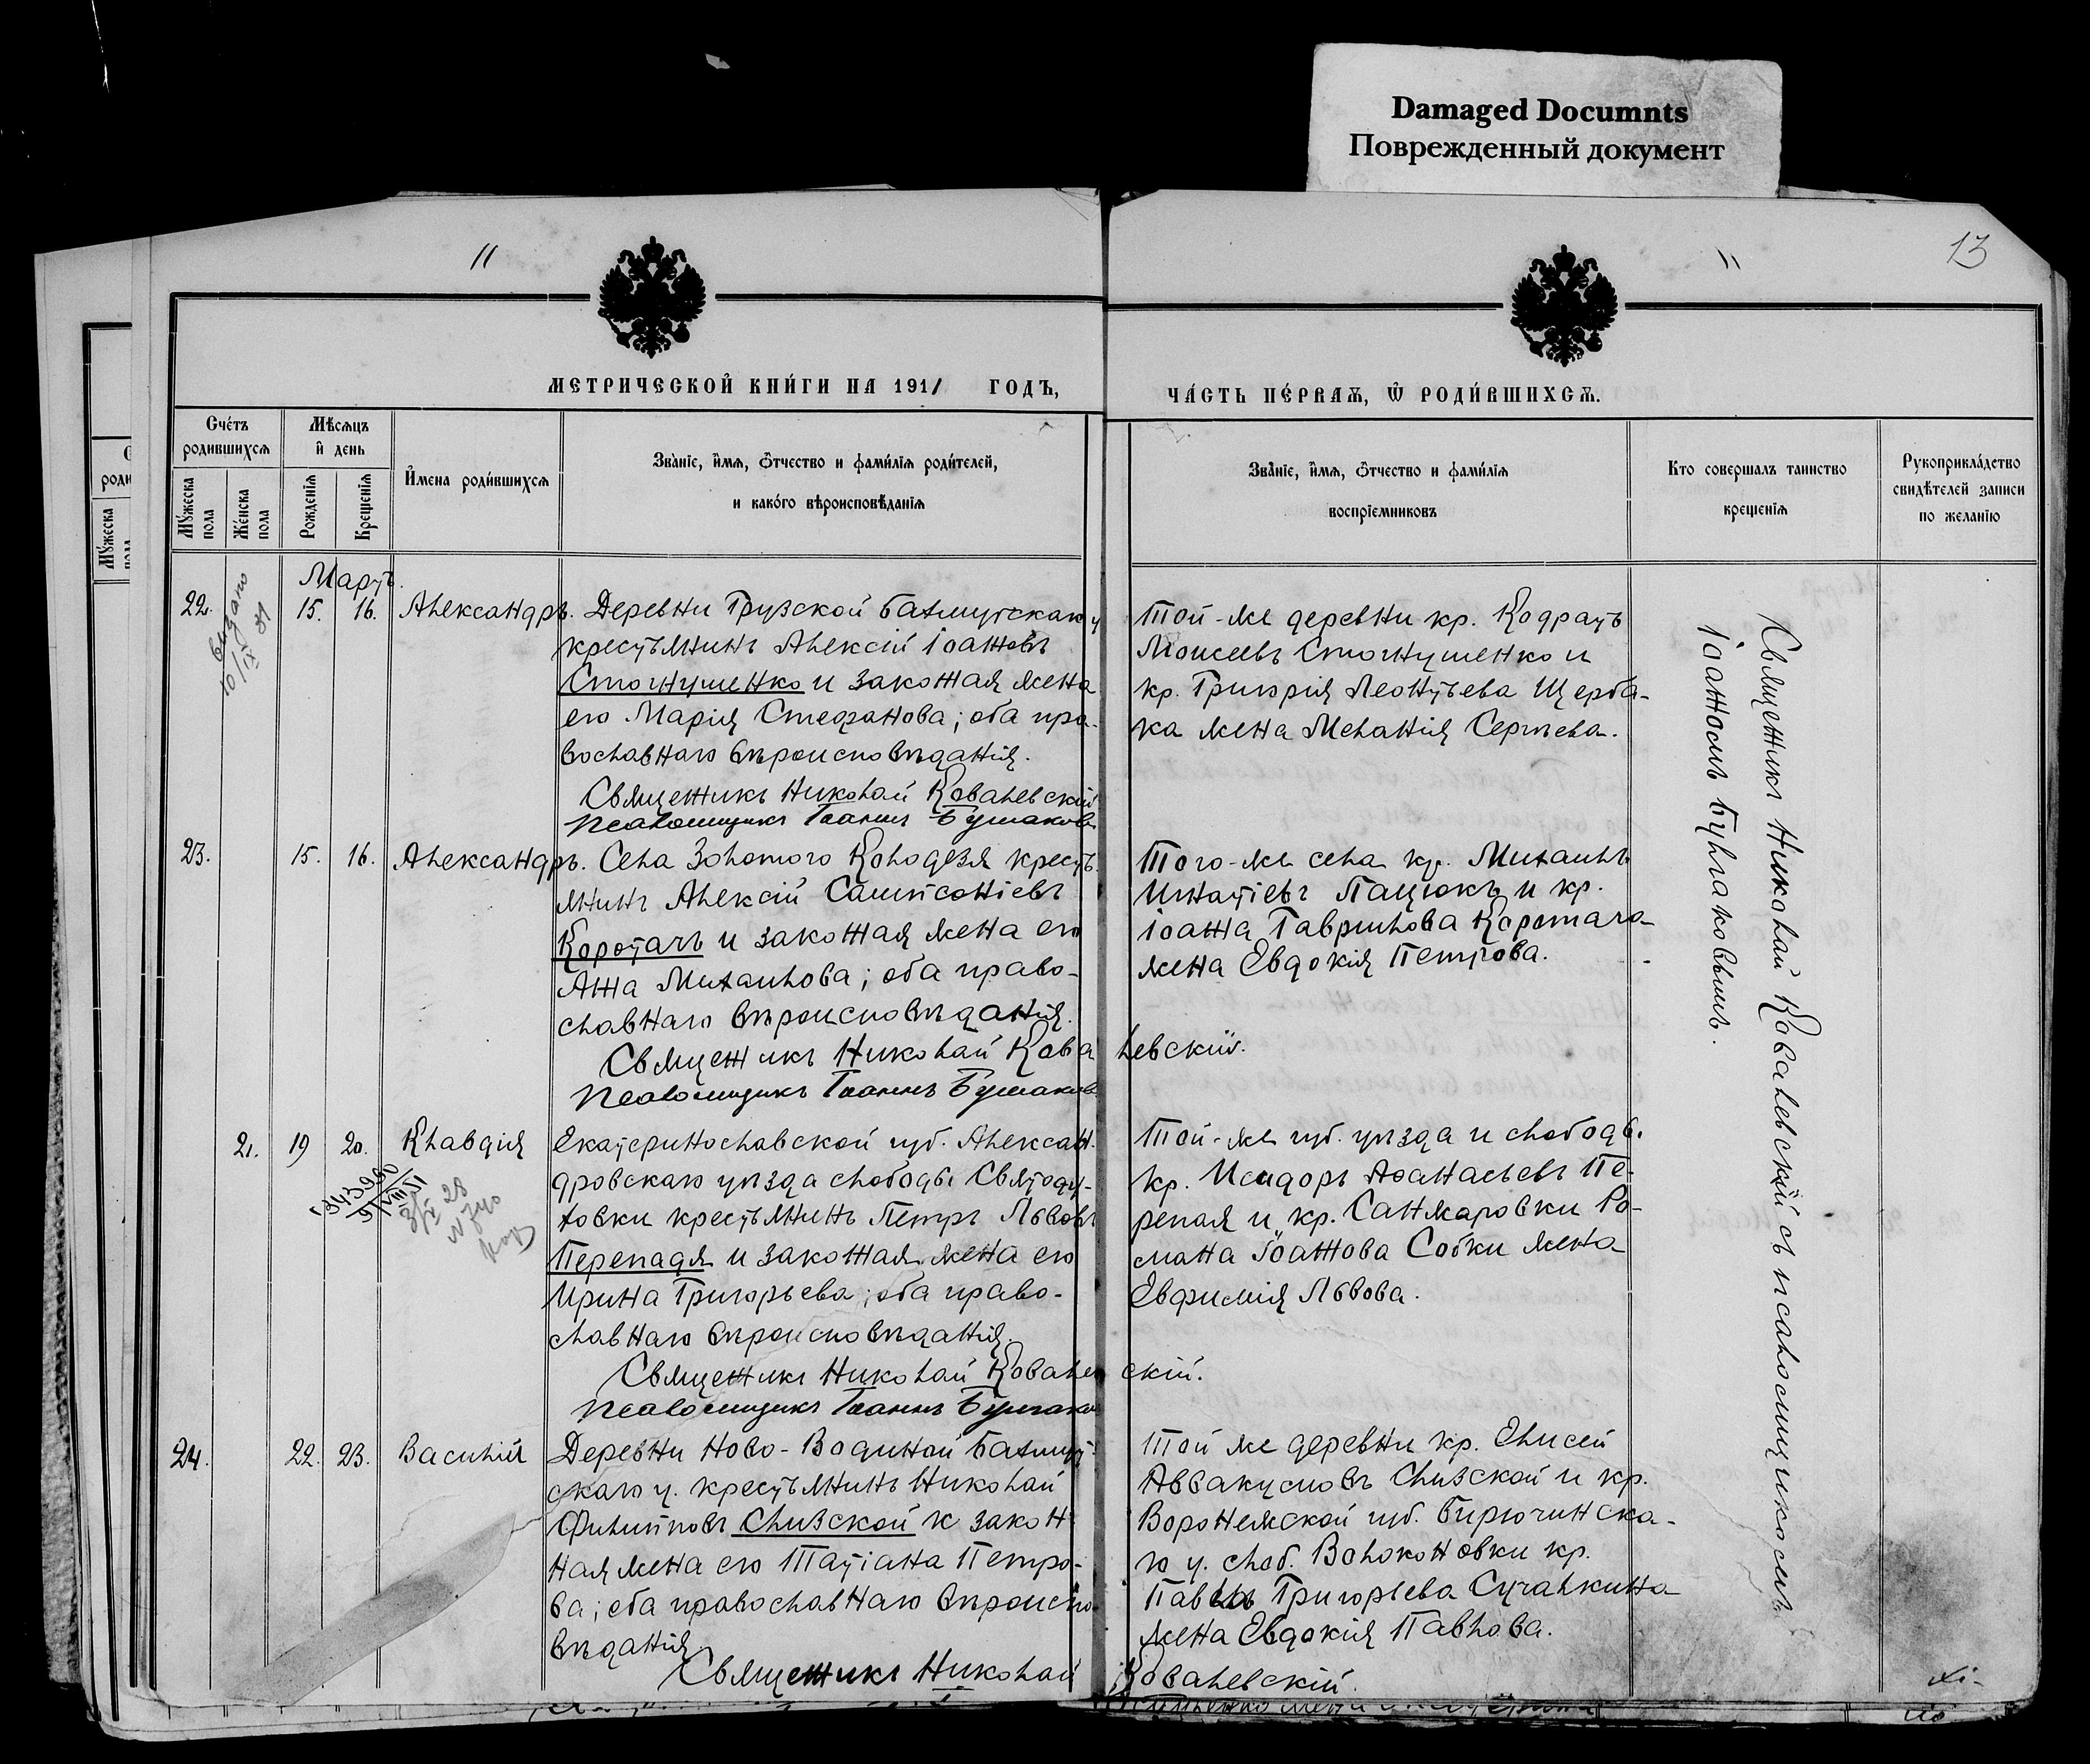 Damaged Documnts
Поврежденный документ
11
11
13
МЕТРИЧЕСКОЙ КНИ́ГИ НА 1911 ГОДЪ,
ЧА́СТЬ ПЕ́РВАѦ, Ѡ҆ РОДИ́ВШИХСѦ.
Сче́тъ
родившихсѧ
Мѣсѧцъ
и҆ день
Мꙋжеска
пола
Же́нска
пола
Рожденїѧ
Крещенїѧ
И҆мена роди́вшихсѧ
Зва́нїе, и҆мѧ, ѻ҆тчество и фами́лїѧ роди́телей,
и како́го вѣроисповѣ́данїѧ
Зва́нїе, и҆мѧ, ѻ҆тчество и фами́лїѧ
воспрїемниковъ
Кто совершалъ таинство
крещенїѧ
Рукоприкла́дство
свидѣ́телей записи
по желанїю
Мартъ.
22. 15. 16. Александръ.
выдано
10/IX 31
Деревни Грузской Бахмутскаго у
крестьянинъ Алексій Іоанновъ
Стогнушенко и законная жена
его Марія Стефанова; оба пра-
вославнаго вѣроисповѣданія.
Священникъ Николай Ковалевскій
Псаломщикъ Іоаннъ Булгаковъ
Той-же деревни кр. Кодратъ
Моисеевъ Стогнушенко и
кр. Григорія Леонтьева Щерба-
ка жена Меланія Сергѣева.
23. 15. 16. Александръ.
Села Золотого Колодезя кресть
янинъ Алексій Сампсоніевъ
Коротачъ и законная жена его
Анна Михаилова; оба право-
славнаго вѣроисповѣданія.
Священникъ Николай Ковалевскій.
Псаломщикъ Іоаннъ Булгаковъ
Того-же села кр. Михаилъ
Игнатіевъ Пацюкъ и кр.
Іоанна Гаврилова Коротача-
жена Евдокія Петрова.
21. 19 20. Клавдія
343990
9/VIII 51
3/X 28
Екатеринославской губ. Алексан-
дровскаго уѣзда слободы Святоду-
ховки крестьянинъ Петръ Львовъ
Перепадя и законная жена его
Ирина Григорьева; оба право-
славнаго вѣроисповѣданія.
Священникъ Николай Ковалевскій.
Псаломщикъ Іоаннъ Булгаковъ
Той-же губ. уѣзда и слободы
кр. Исидоръ Аѳанасьевъ Пе-
репая и кр. Санжаровки Ро-
мана Іоаннова Собки жена
Евфимія Львова.
24. 22. 23. Василій
Деревни Ново-Водяной Бахмут-
скаго у. крестьянинъ Николай
Филипповъ Слизской и закон-
ная жена его Татіана Петро-
ва; оба православнаго вѣроиспо-
вѣданія.
Священникъ Николай Ковалевскій.
Той же деревни кр. Елисей
Аввакумовъ Слизской и кр.
Воронежской губ. Бирючинска-
го у. слоб. Волоконовки кр.
Павелъ Григорьева Сучалкина
жена Евдокія Павлова.
Священникъ Николай Ковалевскій съ псаломщикомъ
Іоанномъ Булгаковымъ.